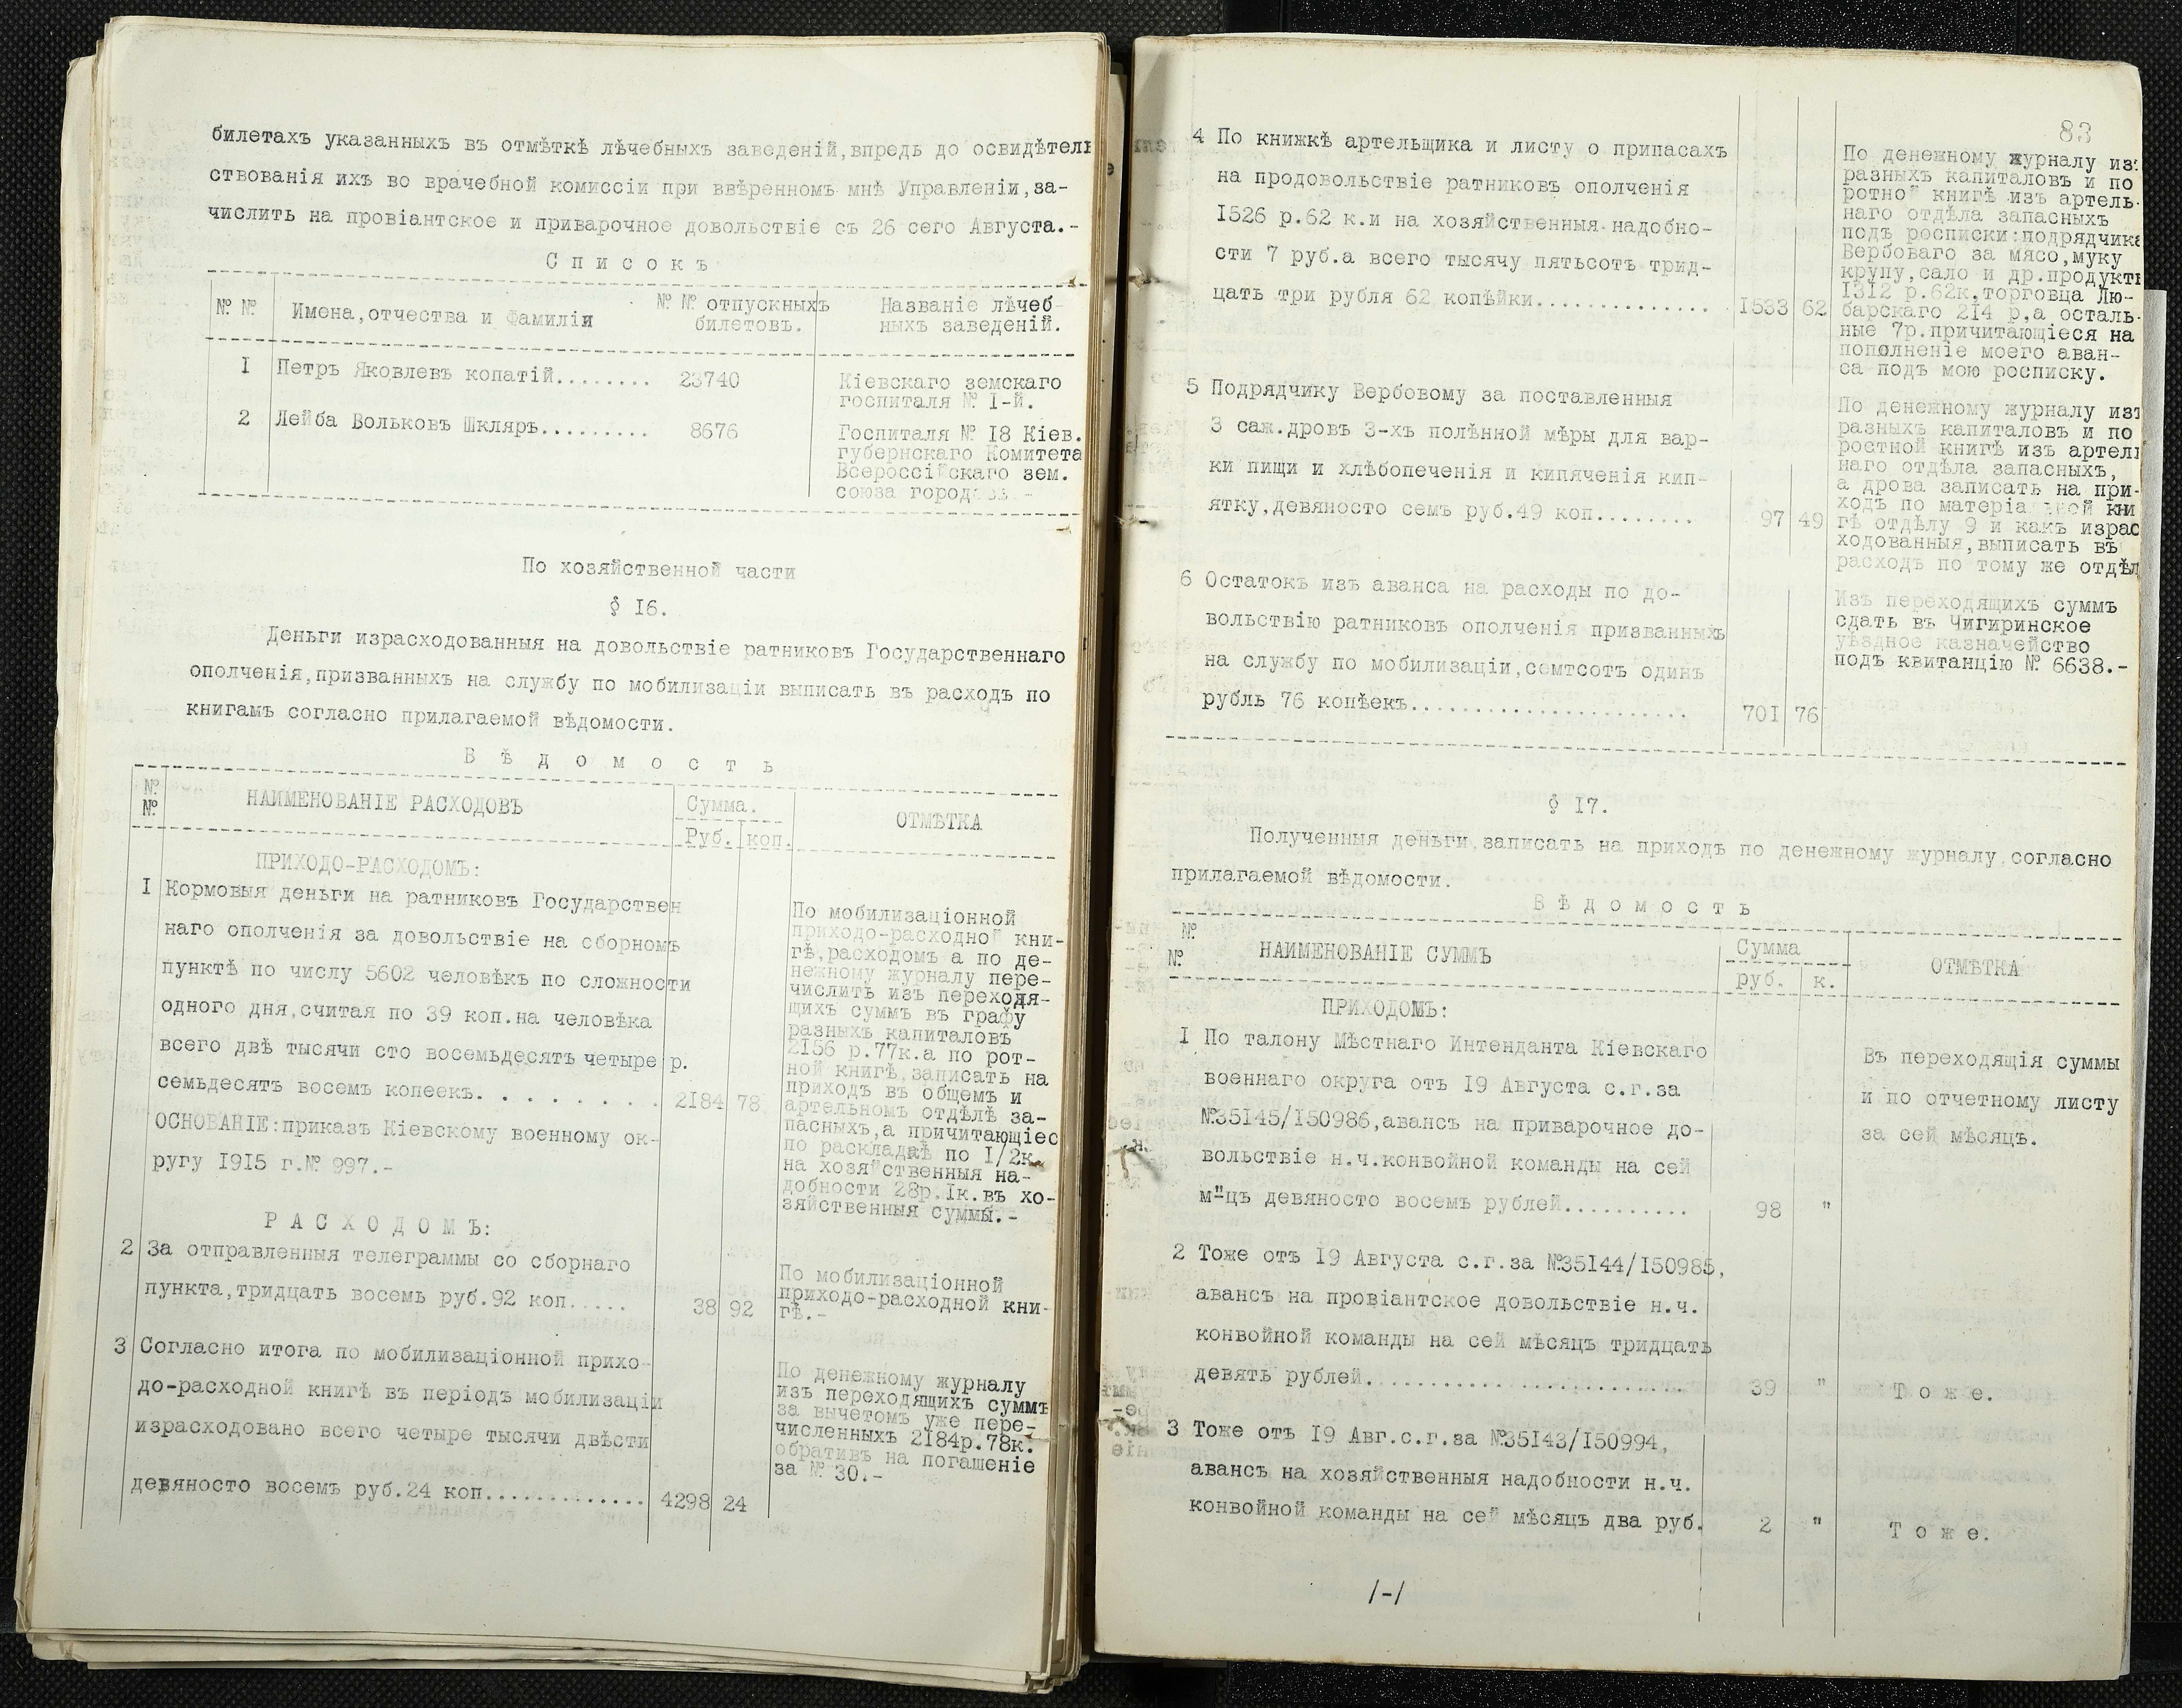 билетахъ указанныхъ въ отмѣткѣ лѣчебныхъ заведеній,впредь до освидѣтель
ствованія ихъ во врачебной комиссіи при ввѣренномъ мнѣ Управленіи,за-
числить на провіантское и приварочное довольствіе съ 26 сего Августа.-
С п и с о к ъ
№ №
Имена,отчества и фамиліи
№ № отпускныхъ
билетовъ.
Названіе лѣчеб
ныхъ заведеній.
I Петръ Яковлевъ копатій........ 23740
Кіевскаго земскаго
госпиталя № I-й.
2 Лейба Вольковъ Шкляръ......... 8676
Госпиталя № I8 Кіев.
губернскаго Комитета
Всероссійскаго зем.
союза
По хозяйственной части
§ I6.
Деньги израсходованныя на довольствіе ратниковъ Государственнаго
ополченія,призванныхъ на службу по мобилизаціи выписать въ расходъ по
книгамъ согласно прилагаемой вѣдомости.
В ѣ д о м о с т ь
№
№
НАИМЕНОВАНІЕ РАСХОДОВЪ
Сумма.
Руб. коп.
ОТМѢТКА
ПРИХОДО-РАСХОДОМЪ:
I Кормовыя деньги на ратниковъ Государствен
наго ополченія за довольствіе на сборномъ
пунктѣ по числу 5602 человѣкъ по сложности
одного дня,считая по 39 коп.на человѣка
всего двѣ тысячи сто восемьдесятъ четыре р.
семьдесятъ восемъ копеекъ. . . . . . . . . 2I84 78
ОСНОВАНІЕ:приказъ Кіевскому военному ок-
ругу I9I5 г.№ 997.-
По мобилизаціонной
приходо-расходной кни-
гѣ,расходомъ а по де-
нежному журналу пере-
числить изъ переходя-
щихъ суммъ въ графу
разныхъ капиталовъ
2I56 р.77к.а по рот-
ной книгѣ,записать на
приходъ въ общемъ и
артельномъ отдѣлѣ за-
пасныхъ,а причитающіес
по раскладкѣ по I/2к.
на хозяйственныя на-
добности 28р.Iк.въ хо-
зяйственныя суммы.-
Р А С Х О Д О М Ъ:
2 За отправленныя телеграммы со сборнаго
пункта,тридцать восемь руб.92 коп..... 38 92
По мобилизаціонной
приходо-расходной кни-
гѣ.-
3 Согласно итога по мобилизаціонной прихо-
до-расходной книгѣ въ періодъ мобилизаціи
израсходовано всего четыре тысячи двѣсти
девяносто восемъ руб.24 коп............. 4298 24
По денежному журналу
изъ переходящихъ суммъ
за вычетомъ уже пере-
численныхъ 2I84р.78к.
обративъ на погашеніе
за № 30.-
83
4 По книжкѣ артельщика и листу о припасахъ
на продовольствіе ратниковъ ополченія
I526 р.62 к.и на хозяйственныя надобно-
сти 7 руб.а всего тысячу пятьсотъ трид-
цать три рубля 62 копѣйки.............. I533 62
По денежному журналу изъ
разныхъ капиталовъ и по
ротно" книгѣ изъ артель-
наго отдѣла запасныхъ
подъ росписки:подрядчика
Вербоваго за мясо,муку
крупу,сало и др.продукты
I3I2 р.62к.торговца Лю-
барскаго 2I4 р,а осталь-
ные 7р.причитающіеся на
пополненіе моего аван-
са подъ мою росписку.
5 Подрядчику Вербовому за поставленныя
3 саж.дровъ 3-хъ полѣнной мѣры для вар-
ки пищи и хлѣбопеченія и кипяченія кип-
ятку,девяносто семъ руб.49 коп........ 97 49
По денежному журналу изъ
разныхъ капиталовъ и по
ростной книгѣ изъ артель
наго отдѣла запасныхъ,
а дрова записать на при-
ходъ по матеріальной кни
гѣ отдѣлу 9 и какъ израс
ходованныя,выписать въ
расходъ по тому же отдѣл
6 Остатокъ изъ аванса на расходы по до-
вольствію ратниковъ ополченія призванныхъ
на службу по мобилизаціи,семтсотъ одинъ
рубль 76 копѣекъ...................... 70I 76
Изъ переходящихъ суммъ
сдать въ Чигиринское
уѣздное казначейство
подъ квитанцію № 6638.-
§ I7.
Полученныя деньги записать на приходъ по денежному журналу согласно
прилагаемой вѣдомости.
В ѣ д о м о с т ь
№
№
НАИМЕНОВАНІЕ СУММЪ
Сумма
руб. к.
ОТМѢТКА
ПРИХОДОМЪ:
I По талону Мѣстнаго Интенданта Кіевскаго
военнаго округа отъ I9 Августа с.г.за
№35I45/I50986,авансъ на приварочное до-
вольствіе н.ч.конвойной команды на сей
м"цъ девяносто восемъ рублей.......... 98 "
Въ переходящія суммы
и по отчетному листу
за сей мѣсяцъ.
2 Тоже отъ I9 Августа с.г.за №35I44/I50985,
авансъ на провіантское довольствіе н.ч.
конвойной команды на сей мѣсяцъ тридцать
девять рублей.......................... 39 " Т о ж е.
3 Тоже отъ I9 Авг.с.г.за №35I43/I50994,
авансъ на хозяйственныя надобности н.ч.
конвойной команды на сей мѣсяцъ два руб. 2 " Т о ж е.
/-/